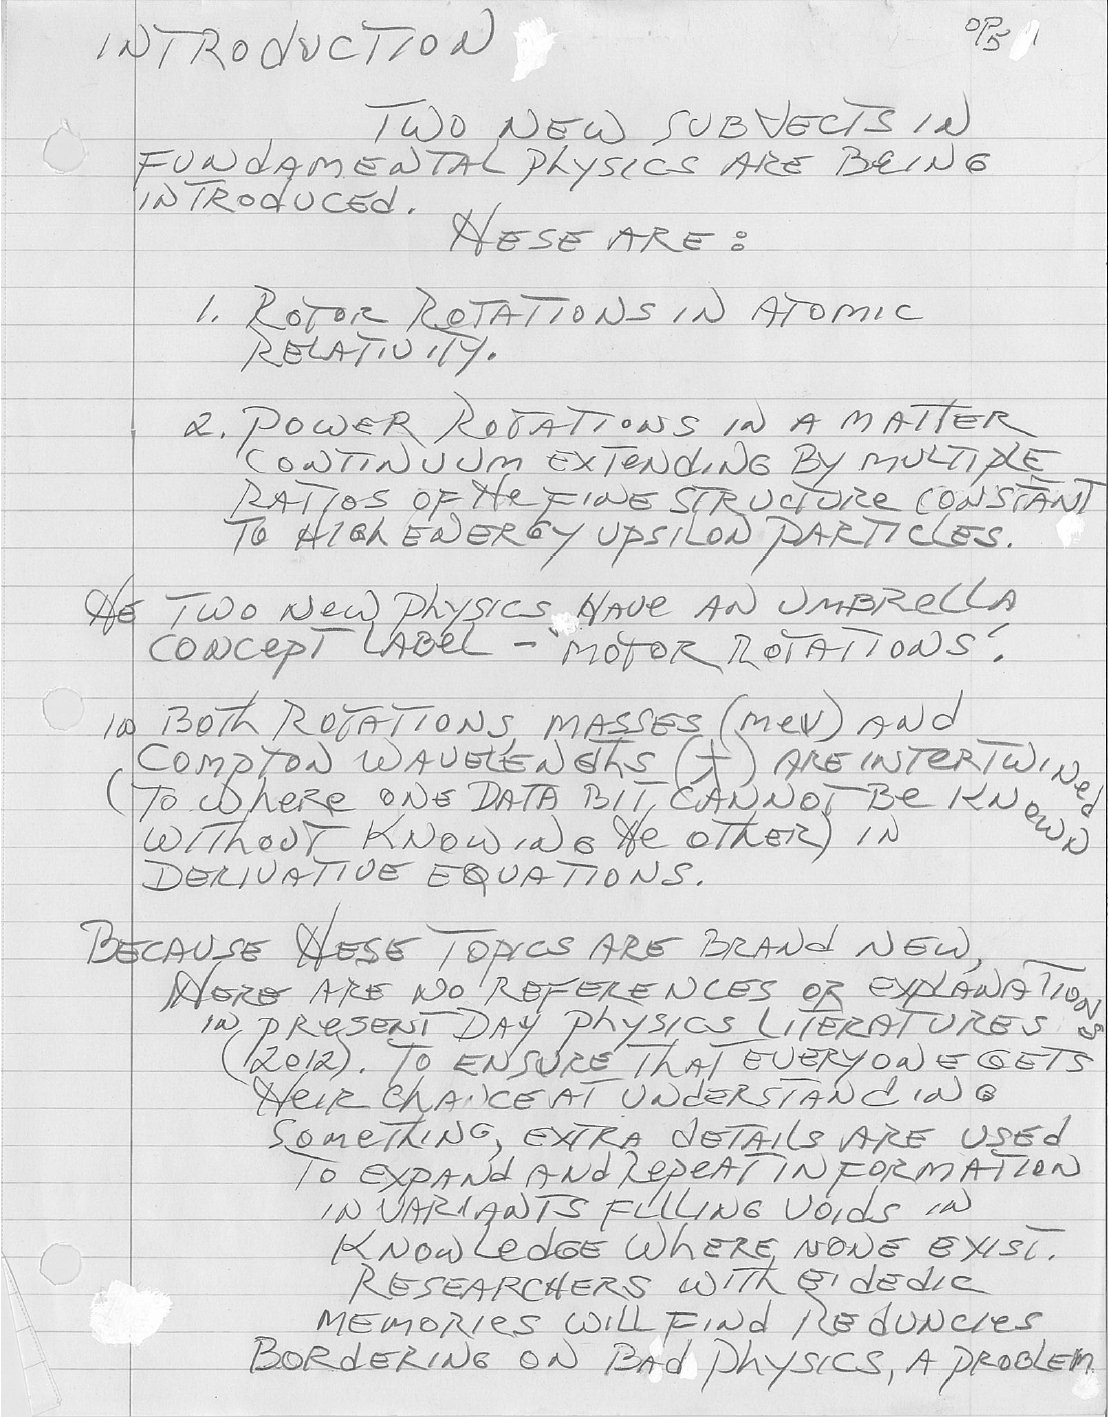 INTRODUCTION
TWO NEW SUBJECTS IN
FUNDAMENTAL PHYSICS ARE BEING
INTRODUCED.
THESE ARE:
1. ROTOR ROTATIONS IN ATOMIC
RELATIVITY.
2. POWER ROTATIONS IN A MATTER
CONTINUUM EXTENDING BY MULTIPLE
RATIOS OF THE FINE STRUCTURE CONSTANT
TO HIGH ENERGY UPSILON PARTICLES.
THE TWO NEW PHYSICS HAVE AN UMBRELLA
CONCEPT LABEL - "MOTOR ROTATIONS".
IN BOTH ROTATIONS, MASSES (MEV) AND
COMPTON WAVELENGTHS (ƛ) ARE INTERTWINED
(TO WHERE ONE DATA BIT CANNOT BE KNOWN
WITHOUT KNOWING THE OTHER) IN
DERIVATIVE EQUATIONS.
BECAUSE THESE TOPICS ARE BRAND NEW,
THERE ARE NO REFERENCES OR EXPLANATIONS
IN PRESENT DAY PHYSICS LITERATURES
(2012). TO ENSURE THAT EVERYONE GETS
THEIR CHANCE AT UNDERSTANDING
SOMETHING, EXTRA DETAILS ARE USED
TO EXPAND AND REPEAT INFORMATION
IN VARIANTS FILLING VOIDS IN
KNOWLEDGE WHERE NONE EXIST.
RESEARCHERS WITH EIDEDIC
MEMORIES WILL FIND REDUNCIES
BORDERING ON BAD PHYSICS, A PROBLEM